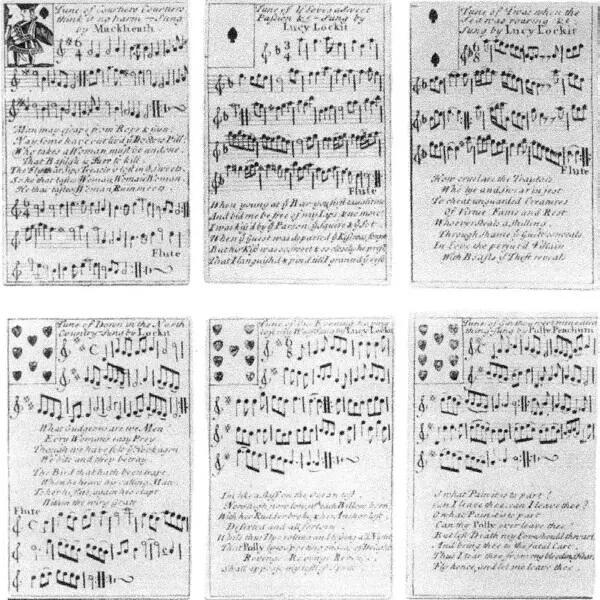 Tune of Courtiers Courtiers
think it no harm — Sung
by Mackheath
Man may escape from Rope & Gun
Nay some have out liv'd
Who takes a Woman must be undone
That Basilisk is sure to kill
The Fly that sips Treacle is lost in sweets
So he that tastes Woman Woman Woman
He that tastes Woman Ruin meets
Flute
Tune of
Passion &c - Sung by
Lucy Lockit
Flute
When young at
And bid me be free of my Lips & no more
I was kiss'd by Parson
When Guest was departed
But his Kiss was so sweet & so closely he prest
That I languish'd & pin'd till I granted
Tune of Twas when the
Sea was roaring &c
Sung by Lucy Lockit
Flute
How cruel are the Traytors
Who lye and swear in jest
To cheat unguarded Creatures
Of Virtue Fame and Rest
Whoever steals a shilling
Through shame Guilt conceals
In Love the perjur'd Villain
With Boasts Theft reveals
Tune of Down in the North
Country Sung by Lockit
What Gudgeons are we Men
Every Woman's easy Prey
Though we have felt Hook agen
We bite and they betray
The Bird that hath been trapt
When he hears his calling Mate
To her he flys, again he's clapt
Within the wiry Grate
Flute
Tune of
Sung by Lucy Lockit
I'm like a Skiff on the Ocean tost
Now high, now low, with each Billow born
With her Rudder broke, & her Anchor lost
Deserted and all forlorn
While thus I lye rolling and tossing all Night
That Polly lyes sporting on seas of Delight
Revenge Revenge Revenge
Shall appease my restless Sprite
Tune of
thing Sung by Polly Peachum
O what Pain it is to part!
Can I leave thee, can I leave thee?
O what Pain it is to part
Can thy Polly ever leave thee?
But lest Death my Love should thwart
And bring thee to the fatal Cart
Thus I tear thee from my bleeding Heart
Fly hence, and let me leave thee